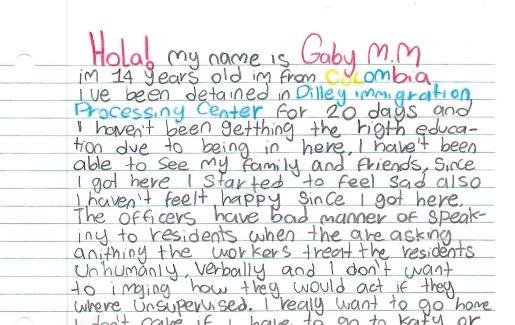 Hola! my name is Gaby M.M
im 14 years old im from Colombia
I've been detained in Dilley immigration
Processing Center for 20 days and
I haven't been getthing the rigth educa-
tion due to being in here, I have't been
able to see my family and friends, Since
I got here I started to feel sad also
I haven't feelt happy Since I got here.
The officers have bad manner of speak-
iny to residents when the are askng
anithing the workers treat the residents
unhumanly, verbally and I don't want
to imging how they would act if they
where unsupervised. I realy want to go home
I don't care if I have to go to Katy or